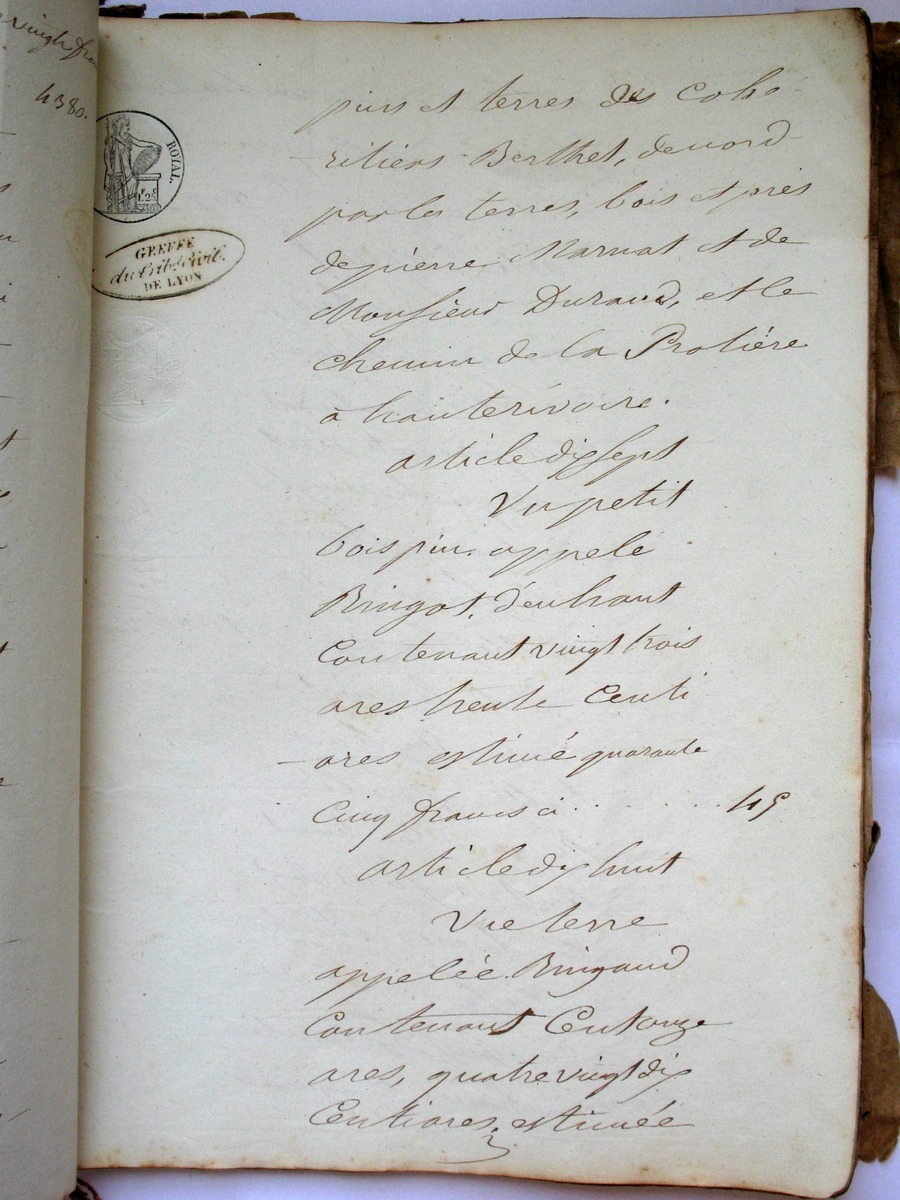 vingt fran
4380.
ROYAL.
GREFFE
du trib. civil.
DE LYON
pins et terres des cohé-
-ritiers Berthet, de nord
par les terres, bois et près
de pierre Marnat et de
Monsieur Durand, et le
chemin de la Protière
à hauterivoire.
article dix sept
Un petit
bois pin. appelé
Bringot, d'enhaut
Contenant vingt trois
ares trente Centi
-ares estimé quarante
Cinq francs ci . . . . . 45
article dix huit
Une terre
appelée Bringaud
Contenant Cent onze
ares, quatre vingt dix
Centiares, estimée